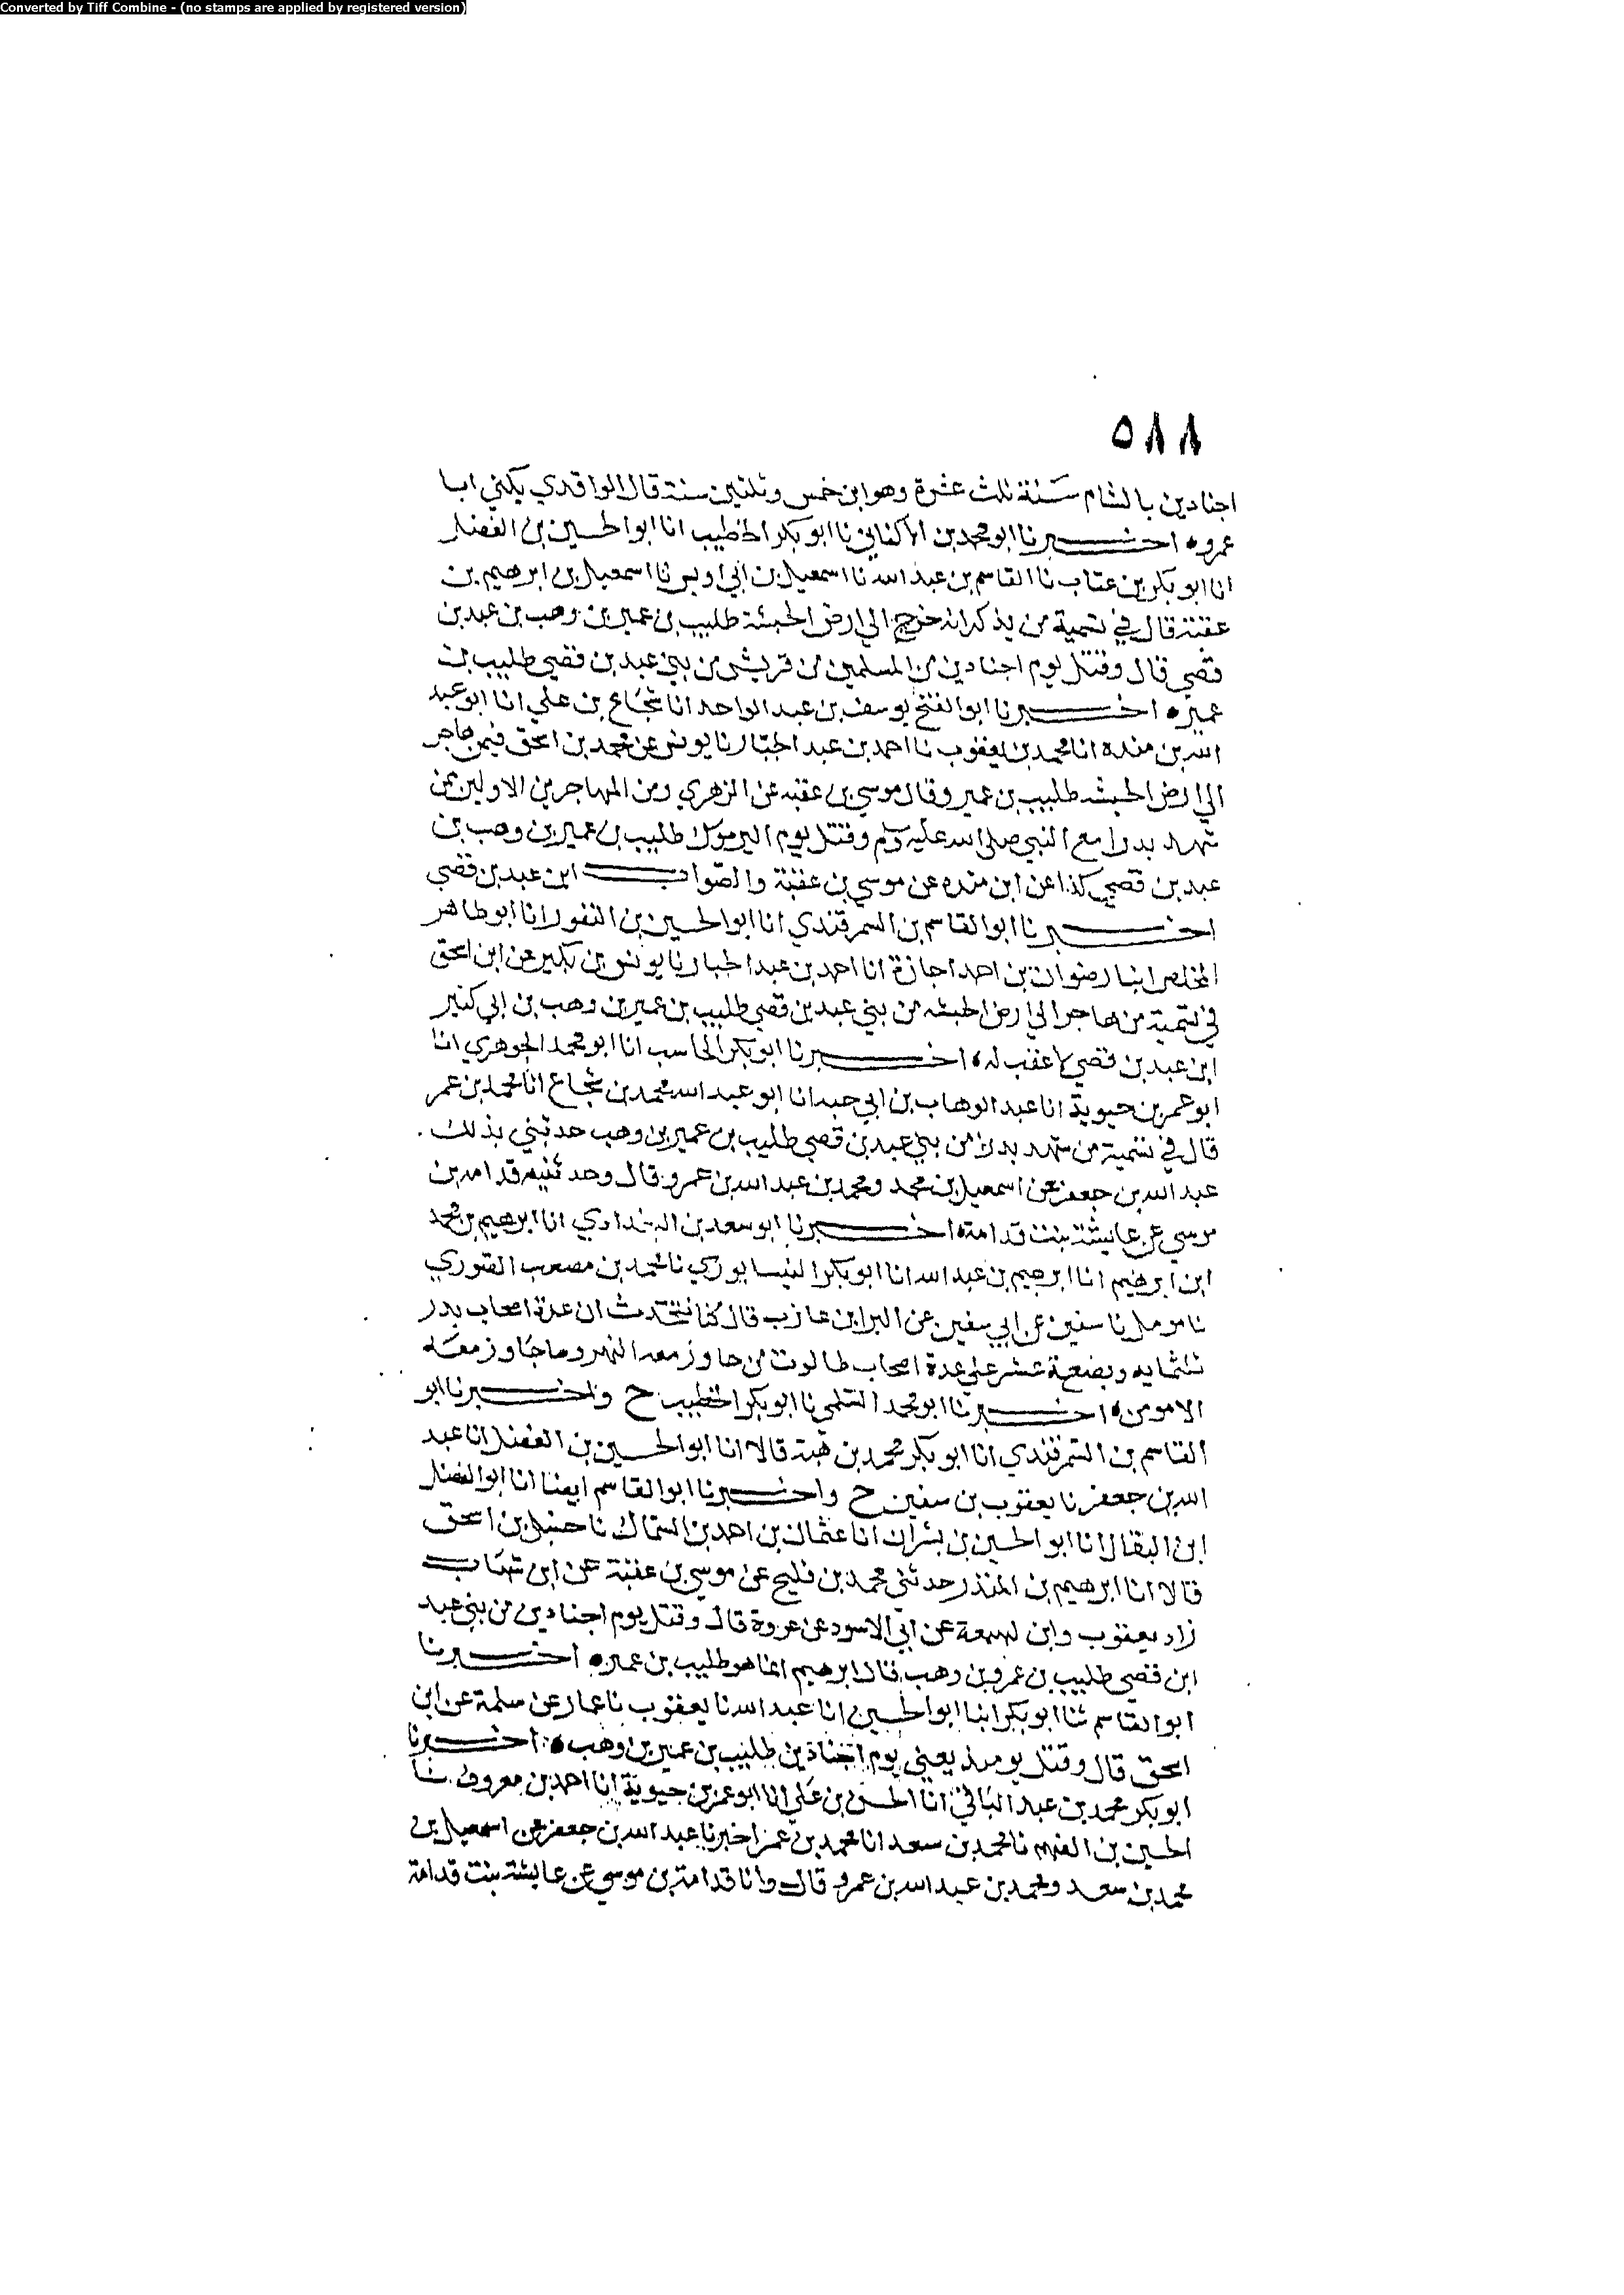 Converted by Tiff Combine - (no stamps are applied by registered version)
٥٨٨
اجنادين بالشام سنة ثلث عشرة وهو ابن خمس وثلثين سنة قال الواقدي يكني ابا
عمرو ه اخبرنا ابو محمد بن الاكفاني نا ابو بكر الخطيب انا ابو الحسين بن الفضل
انا ابو بكر بن عتاب نا القاسم بن عبد الله نا اسمعيل بن ابي اويس نا اسمعيل بن ابرهيم بن
عقبة قال في تسمية من يذكر انه خرج الي ارض الحبشة طليب بن عمير بن وهب بن عبد بن
قصي قال وقتل يوم اجنادين من المسلمين من قريش من بني عبد بن قصي طليب بن
عمير ه اخبرنا ابو الفتح يوسف بن عبد الواحد انا شجاع بن علي انا ابو عبد
الله بن منده انا محمد بن يعقوب نا احمد بن عبد الجبار نا يونس عن محمد بن اسحق فيمن هاجر
الي ارض الحبشه طليب بن عمير وقال موسي بن عقبه عن الزهري ومن المهاجرين الاولين ممن
شهد بدرا مع النبي صلى الله عليه وسلم وقتل يوم اليرموك طليب بن عمير بن وهب بن
عبد بن قصي كذا عن ابن منده عن موسي بن عقبة والصواب ابن عبد بن قصي
اخبرنا ابو القاسم بن السمرقندي انا ابو الحسين بن النقور انا ابو طاهر
المخلص ابنا رضوان بن احمد اجازة انا احمد بن عبد الجبار نا يونس بن بكير عن ابن اسحق
في تسمية من هاجر الي ارض الحبشه من بني عبد بن قصي طليب بن عمير بن وهب بن ابي كثير
ابن عبد بن قصي لا عقب له ه اخبرنا ابو بكر الحاسب انا ابو محمد الجوهري انا
ابو عمر بن حيوية انا عبد الوهاب بن ابي حيه انا ابو عبد الله محمد بن شجاع انا محمد بن عمر
قال في تسمية من شهد بدرا من بني عبد بن قصي طليب بن عمير بن وهب حدثني بذلك .
عبد الله بن جعفر عن اسمعيل بن محمد ومحمد بن عبد الله بن عمرو قال وحدثنيه قدامه بن
موسي عن عايشة بنت قدامة ه اخبرنا ابو سعد بن البغدادي انا ابرهيم بن محمد
ابن ابرهيم انا ابرهيم بن عبد الله انا ابو بكر النيسابوري نا محمد بن مصعب الصوري
نا مومل نا سفين عن ابي سفين عن البرا بن عازب قال كنا نتحدث ان عدة اصحاب بدر
ثلثمايه وبضعة عشر علي عدة اصحاب طالوت من جاوز معه النهر وما جاوز معه
الا مومن ه اخبرنا ابو محمد السلمي نا ابو بكر الخطيب ح واخبرنا ابو
القاسم بن السمرقندي انا ابو بكر محمد بن هبة قالا انا ابو الحسين بن الفضل انا عبد
الله بن جعفر نا يعقوب بن سفين ح واخبرنا ابو القاسم ايضا انا ابو الفضل
ابن البقال انا ابو الحسين بن بشران انا عثمان بن احمد بن السماك نا حنبل بن اسحق
قالا انا ابرهيم بن المنذر حدثني محمد بن فليح عن موسي بن عقبة عن ابن شهاب
زاد يعقوب وابن لهيعة عن ابي الاسود عن عروة قال وقتل يوم اجنادين من بني عبد
ابن قصي طليب بن عمرو بن وهب قال ابرهيم انما هو طليب بن عمير ه اخبرنا
ابو القاسم ثنا ابو بكر ابنا ابو الحسين انا عبد الله نا يعقوب نا عمار عن سلمة عن ابن
اسحق قال وقتل يومئذ يعني يوم اجنادين طليب بن عمير بن وهب ه اخبرنا
ابو بكر محمد بن عبد الباقي انا الحسن بن علي انا ابو عمر بن حيوية انا احمد بن معروف نا
الحسين بن الفهم نا محمد بن سعد انا محمد بن عمر اخبرنا عبد الله بن جعفر عن اسمعيل بن
محمد بن سعد ومحمد بن عبد الله بن عمرو قال وانا قدامة بن موسي عن عايشة بنت قدامة